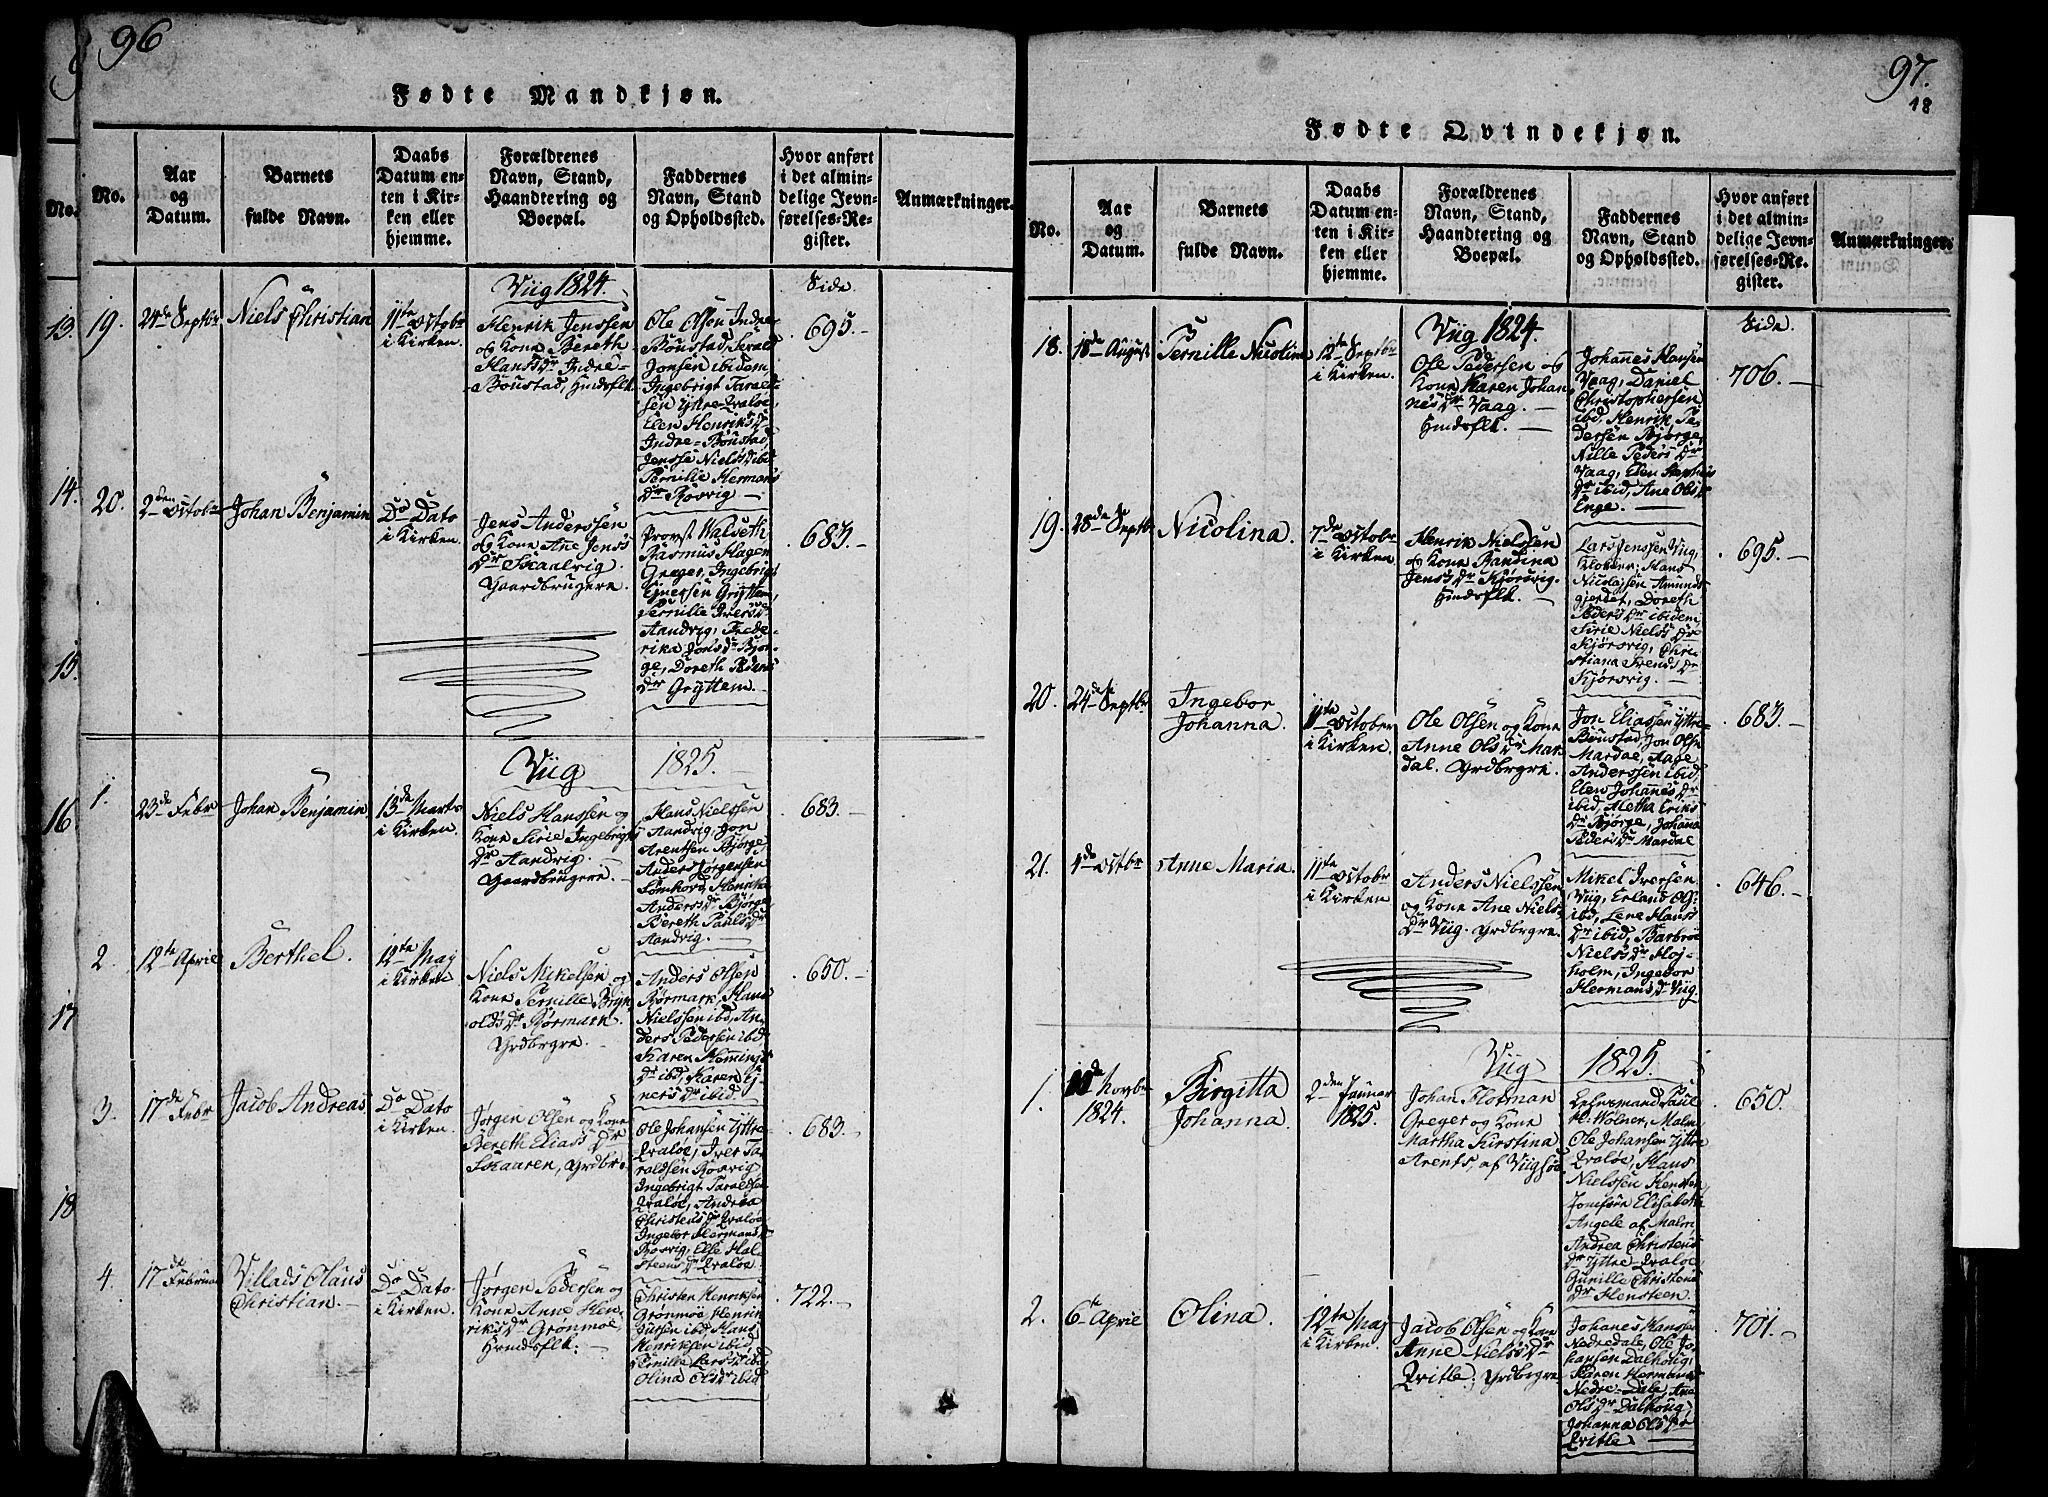 96
Fødte Mandkjøn.
No.
Aar
og
Datum.
Barnets
fulde Navn.
Daabs
Datum en-
ten i Kir-
ken eller
hjemme.
Forældrenes
Navn, Stand,
Haandtering og
Boepæl.
Faddernes
Navn, Stand
og Opholdssted.
Hvor anført
i det almin-
delige Jevn-
førelses-Re-
gister.
Anmærkninger.
Viig 1824.
Side
19.
24de Septbr
Niels Christian
11te Octobr
i Kirken.
Henrik Jenssen
og Kone Bereth
Hansdr Indre-
Bøustad, Huusflk.
Ole Olsen Indre-
Bøustad, Jerald
Jonsen ibidem,
Ingebrigt Tarald-
sen Yttre-Qvaløe,
Elen Henriksdr
Indre-Bøustad,
Jensse Nielsdr ibid
Pernille Hermans
dr Rosvig
695.
20.
2den Octobr
Johan Benjamin
Do Dato
i Kirken.
Jens Anderssen
og Kone Ane Jens
dr Skaalvig.
Gaardbrugere.
Provst Walseth,
Rasmus Hagen
Greger, Ingebrigt
Ejnersen Gryttem,
Pernille Iversdr
Aandvig, Frede-
rika Jonsdr Bjør-
ge, Doreth Peders
dr Gryttem.
683.
Viig 1825.
1.
23de Febr
Johan Benjamin
13de Marts
i Kirken.
Niels Hanssen og
Kone Sirie Ingebrigts
dr Aandvig.
Gaardbrugere.
Hans Nielssen
Aandvig, Jon
Arentsen Bjørge,
Anders Jørgensen
Henrika
Andersdr Bjørge,
Bereth Paulsdr
Aandvig.
683.
2.
12te April
Berthel.
12te Maj
i Kirken
Niels Mikelsen og
Kone Pernille Bryn-
oldsdr Rørmark.
Grdbrgre.
Anders Olsen
Rørmark, Hans
Nielssen ibid, An-
ders Pedersen ibid,
Karen Flemings
dr ibid, Karen Ej-
nersdr ibid.
650.
3.
17de Febr
Jacob Andreas
Do Dato
i Kirken.
Jørgen Olsen og Kone
Bereth Eliasdr
Skaaren, Grdbr.
Ole Johansen Yttre-
Qvaløe, Iver Ta-
raldsen Rosvig
Ingebrigt Taraldsen
Qvaløe, Andrea
Christensdr Qvaløe
Ingebor Hermansdr
Rosvig, Else Hal-
steensdr Qvaløe.
683.
4.
17de Februar
Villads Claus
Christian.
Do Dato
i Kirken.
Jørgen Pedersen og
Kone Anne Hen-
riksdr Grønmoe,
Huusflk.
Christen Henriksen
Grønmoe, Henrik
Jursen ibid, Hans
Henriksen ibid,
Pernille Larsdr ibid,
Olina Olsdr ibid
722.
13.
14.
15.
16
17
18
97.
18
Fødte Qvindekjøn.
No.
Aar
og
Datum.
Barnets
fulde Navn.
Daabs
Datum en-
ten i Kir-
ken eller
hjemme.
Forældrenes
Navn, Stand,
Haandtering og
Boepæl.
Faddernes
Navn, Stand
og Opholdssted.
Hvor anført
i det almin-
delige Jevn-
førelses-Re-
gister.
Anmærkninger.
Viig 1824.
Side.
18.
18de August
Pernille Nicolina
12te Septbr
i Kirken.
Ole Pedersen og
Kone Karen Johan-
nesdr Vaag.
Huusflk.
Johanes Hansen
Vaag, Daniel
Christophersen
ibid, Henrik Pe-
dersen Bjørge,
Nille Pedersdr
Vaag, Elen Stephens
dr ibid, Ane Olsdr
Enge.
706.
19.
28de Septbr
Nicolina.
7de Octobr
i Kirken
Henrik Nielsen
og Kone Randina
Jensdr Kjørsvig.
Huusflk.
Lars Jenssen Viig,
Klokker; Hans
Nicolajsen Amunds-
gjerdet, Doreth
Pedersdr ibidem,
Sirie Nielsdr
Kjørsvig, Chri-
stiana Svendsdr
Kjørsvig.
695.
20.
24de Septbr
Ingebor
Johanna.
11te October
i Kirken.
Ole Olsen og Kone
Anne Olsdr Mar-
dal. Grdbrgre.
Jon Eliassen Yttre-
Bøustad, Jon Olsen
Mardal, Aage
Anderssen ibid,
Elen Johanesdr
ibid, Aletha Eriks
dr Bjørge, Johana
Pedersdr Mardal
683.
21.
4de Octbr
Anne Maria.
11te Octobr
i Kirken.
Anders Nielssen
og Kone Ane Niels-
dr Viig. Grdbrgre.
Mikel Iversen
Viig, Erland Ol:
ibid, Lene Hans
dr ibid, Barbroe
Nielsdr Høj-
holm, Ingebor
Hermansdr Viig.
646.
Viig 1825.
1.
10de Novbr
1824.
Birgitta
Johanna.
2den Januar
1825.
Johan Flotman
Greger og Kone
Martha Kirstina
Arents, af Viigsøe.
Lehnsmand Paul
H: Wolner, Malm,
Ole Johansen Yttre
Qvaløe, Hans
Nielssen Hensteen
Jomfrue Elisabeth
Angele af Malm
Andrea Christens
dr Yttre-Qvaløe,
Gunille Christens
dr Hensteen.
650.
2.
6te April
Olina.
12te Maj
i Kirken.
Jacob Olsen og Kone
Anne Nielsdr
Qvitle; Grdbrgre
Johanes Hanssen
Nedredale, Ole Jo-
hansen Dalhoug,
Karen Hermansdr
Nedre-Dale, Ane
Olsdr Dalhoug,
Johanna Olsdr
Qvitle
701.